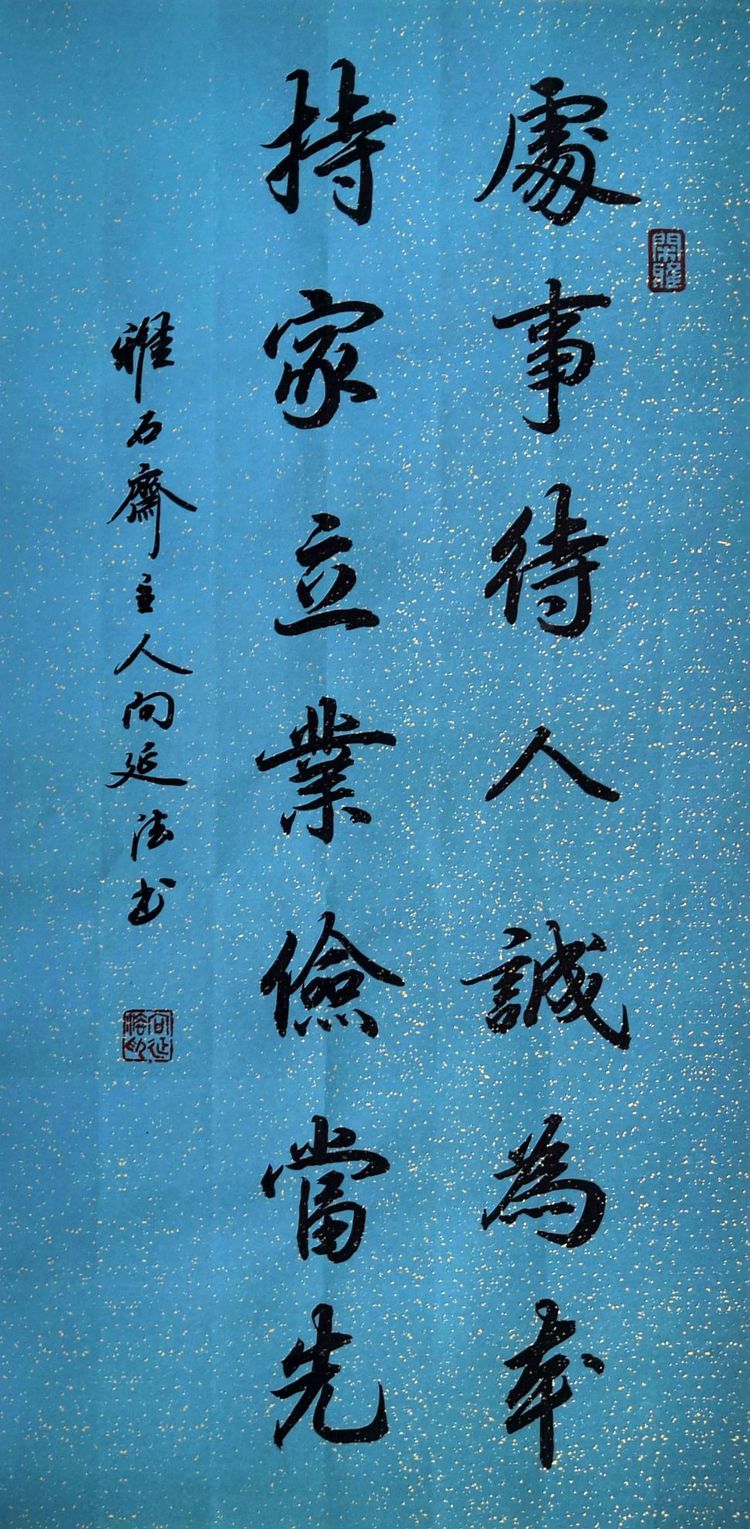 處事待人誠為本
持家立業儉當先
雅石齋主人向延法书
閑雅